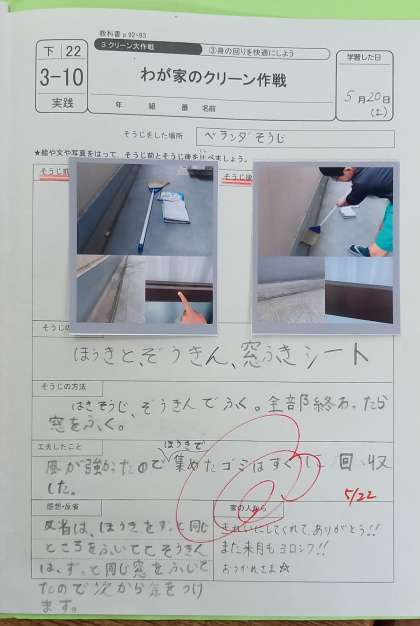 教科書 p.92-93
下 22
3-10
実践
3 クリーン大作戦
③身の回りを快適にしよう
わが家のクリーン作戦
年 組 番 名前
学習した日
5月20日
(土)
そうじをした場所 ベランダそうじ
★絵や文や写真をはって、そうじ前とそうじ後を比べましょう。
そうじ前
そうじ後
そうじの
ほうきと、ぞうきん、窓ふきシート
そうじの方法
はきそうじ、ぞうきんでふく。全部終わったら
窓をふく。
工夫したこと
ほうきで
風が強かったので集めたゴミはすぐに 回収
した。
5/22
感想・反省
反省は、ほうきをずっと同じ
ところをふいてて ぞうきん
は、ずっと同じ窓をふいて
たので次から気をつけ
ます。
家の人から
きれいにしてくれて、ありがとう!!
また来月もヨロシク!!
おつかれさま☆